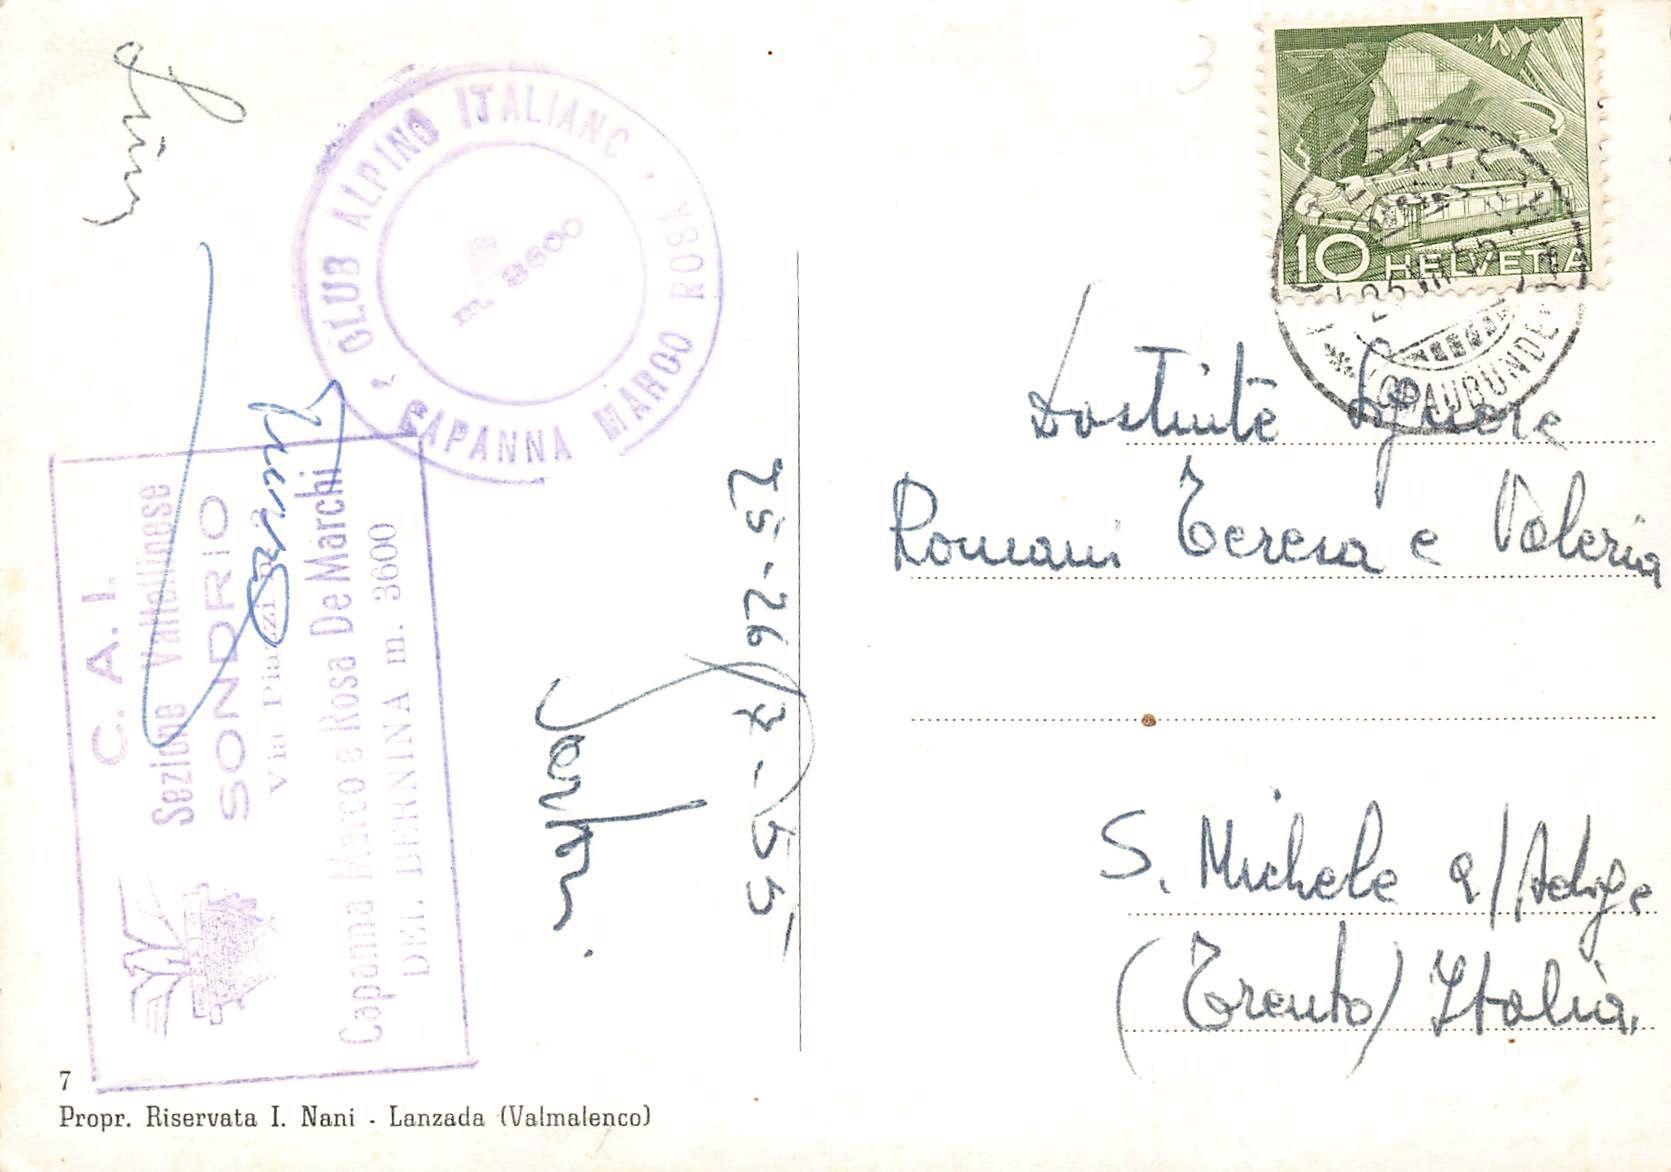 CLUB ALPINO ITALIANO
CAPANNA MARCO ROSA
m. 3600
C. A. I.
Sezione Valtellinese
SONDRIO
Via
Capanna Marco e Rosa De Marchi
DEL BERNINA m. 3600
25-26-7-55
3
10 HELVETIA
(GRAUBÜNDEN)
Signore
Romani Teresa e Valeria
S. Michele a/Adige
(Trento) Italia.
7
Propr. Riservata I. Nani - Lanzada (Valmalenco)